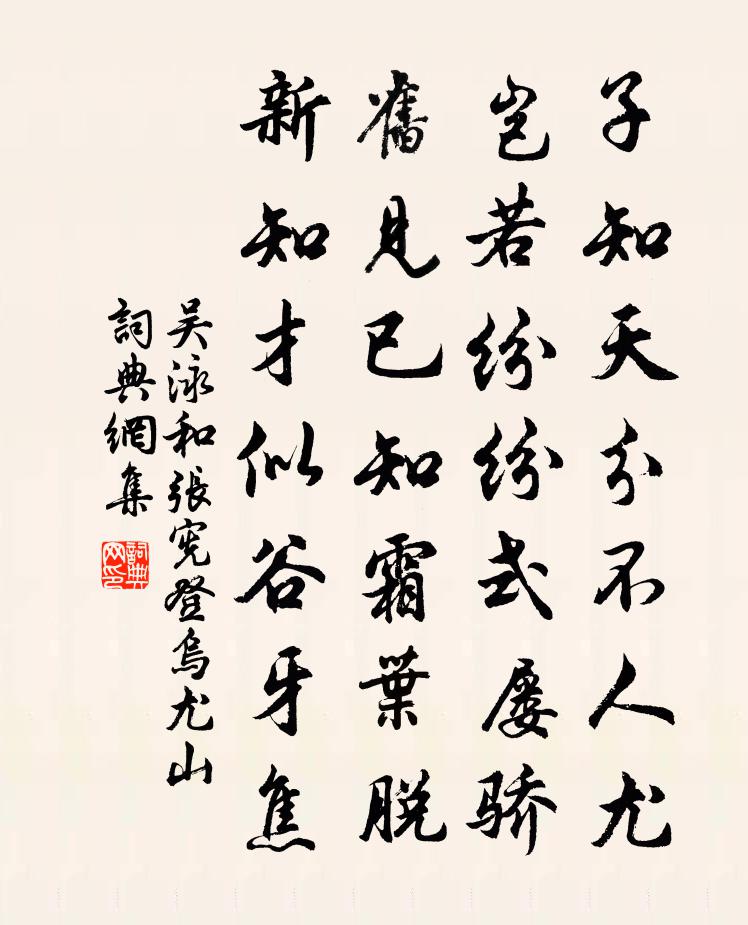 子知天分不人尤
豈若紛紛式屡骄
舊見已知霜葉脫
新知才似谷牙焦
吴泳和張宪登烏尤山
詞典網集
詞典网印